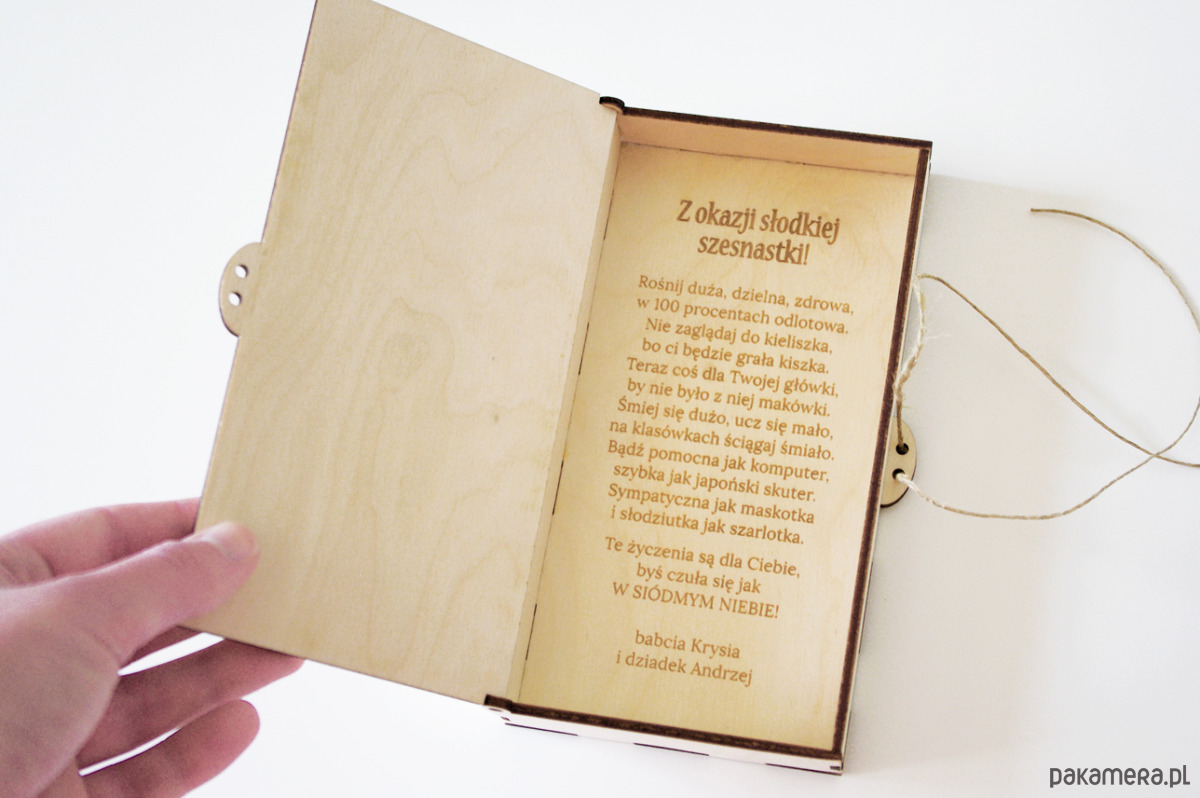 Z okazji słodkiej
szesnastki!
Rośnij duża, dzielna, zdrowa,
w 100 procentach odlotowa.
Nie zaglądaj do kieliszka,
bo ci będzie grała kiszka.
Teraz coś dla Twojej główki,
by nie było z niej makówki.
Śmiej się dużo, ucz się mało,
na klasówkach ściągaj śmiało.
Bądź pomocna jak komputer,
szybka jak japoński skuter.
Sympatyczna jak maskotka
i słodziutka jak szarlotka.
Te życzenia są dla Ciebie,
byś czuła się jak
W SIÓDMYM NIEBIE!
babcia Krysia
i dziadek Andrzej
pakamera.pl